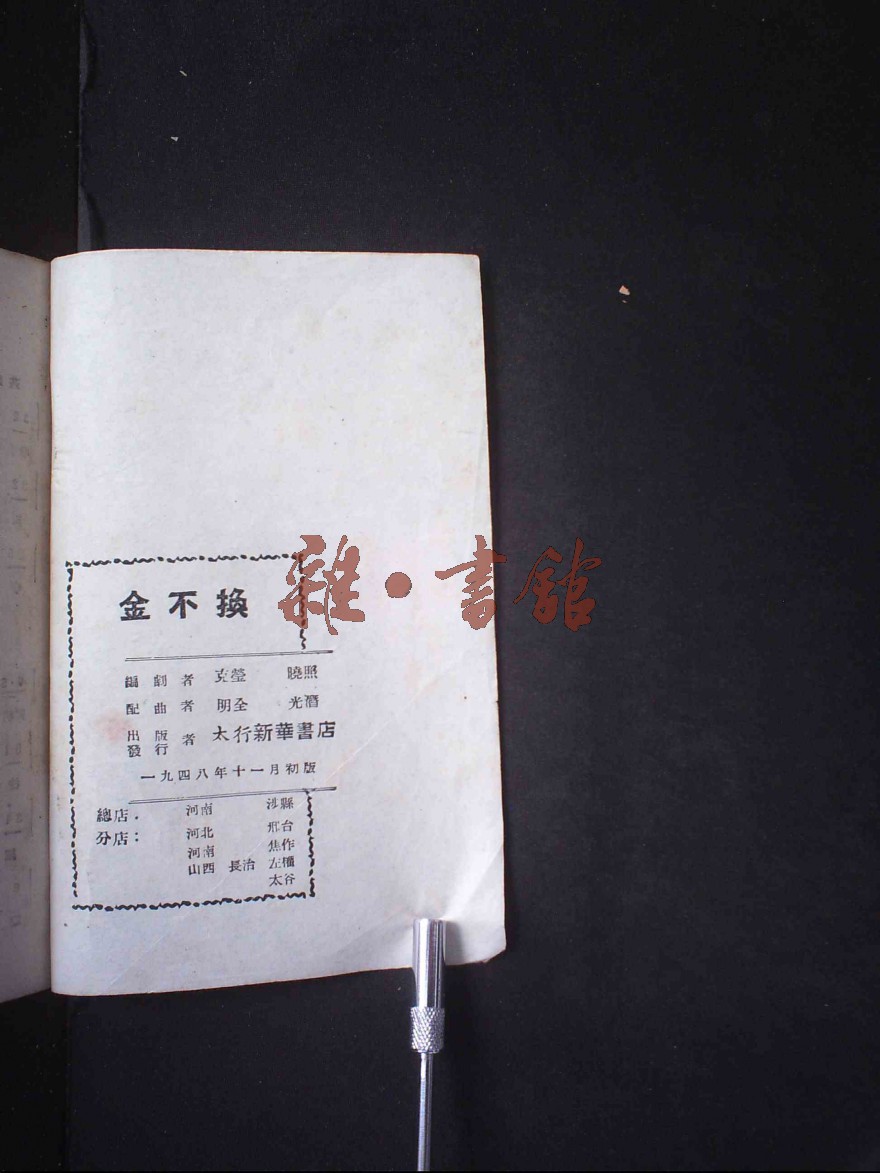 雜·書館
金不換
編劇者 克瑩 曉照
配曲者 明全 光潛
出版發行者 太行新華書店
一九四八年十一月初版
總店: 河南 涉縣
分店: 河北 邢台
河南 焦作
山西 長治 左權
太谷